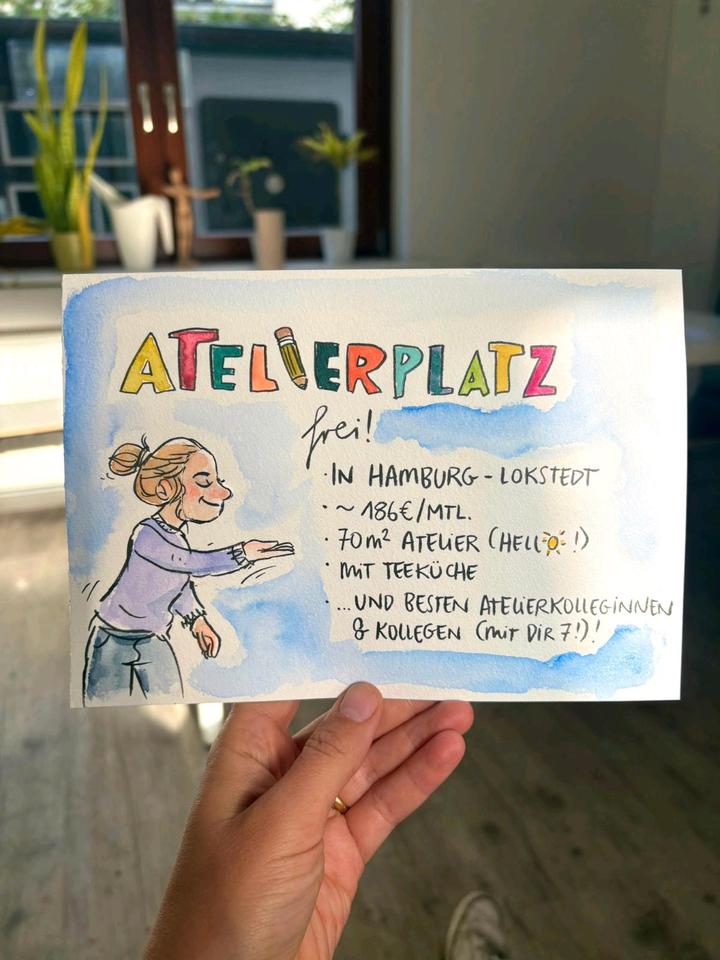 ATELIERPLATZ
frei!
· IN HAMBURG - LOKSTEDT
· ~ 186€/MTL.
· 70m² ATELIER (HELL☀!)
· MIT TEEKÜCHE
· ...UND BESTEN ATELIERKOLLEGINNEN
& KOLLEGEN (MIT DIR 7!)!